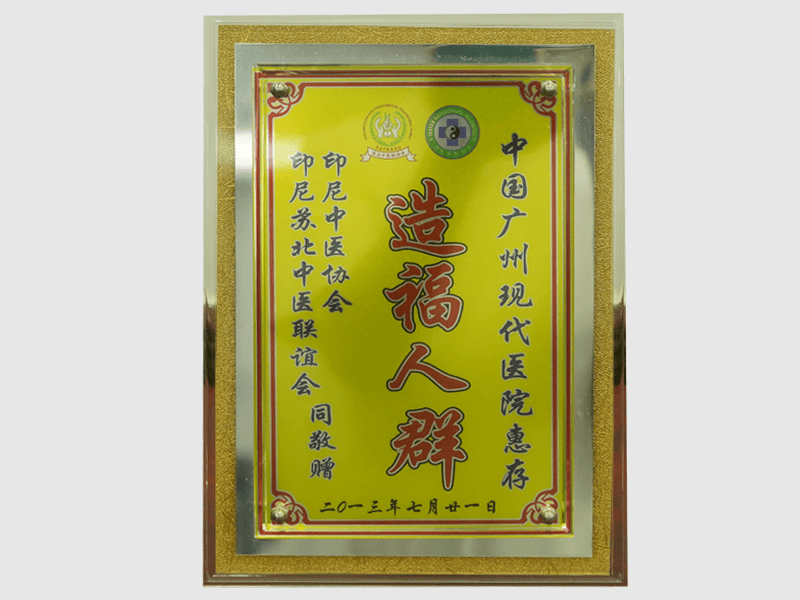 中国广州现代医院惠存
造福人群
印尼中医协会
印尼苏北中医联谊会
同敬赠
二〇一三年七月廿一日